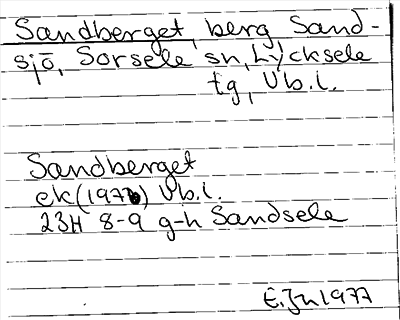 Sandberget, berg Sand-
sjö, Sorsele sn, Lycksele
tg, Vb.l.
Sandberget
ek(1976) Vb.l.
23H 8-9 g-h Sandsele
E.Jn 1977